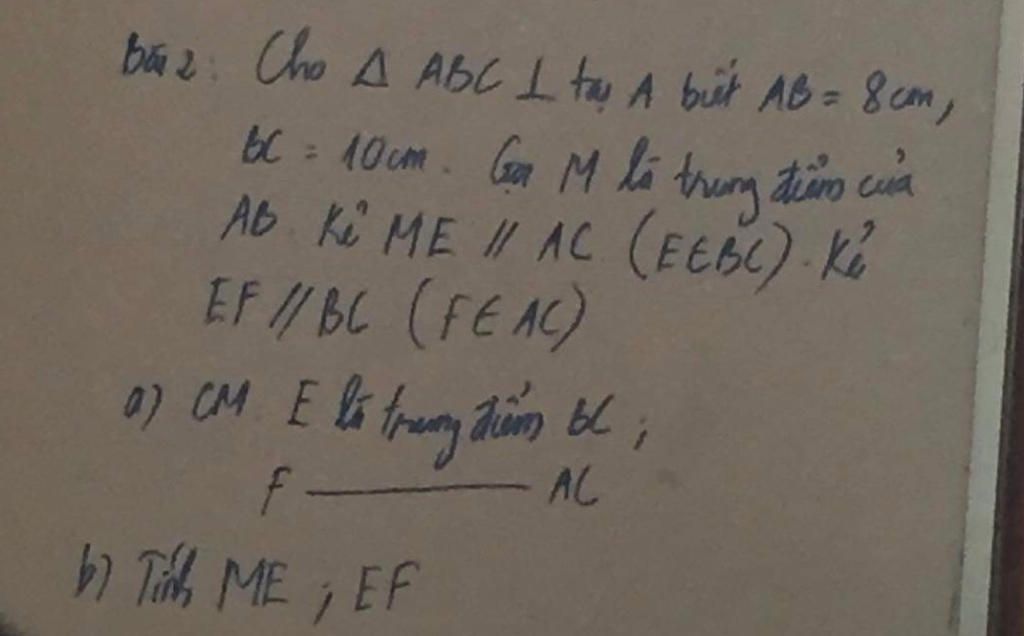 Bài 2: Cho Δ ABC ⊥ tại A biết AB = 8cm,
BC = 10cm. Gọi M là trung điểm của
AB Kẻ ME // AC (E∈BC). Kẻ
EF // BC (F∈AC)
a) CM E là trung điểm BC;
F ——— AC
b) Tính ME; EF